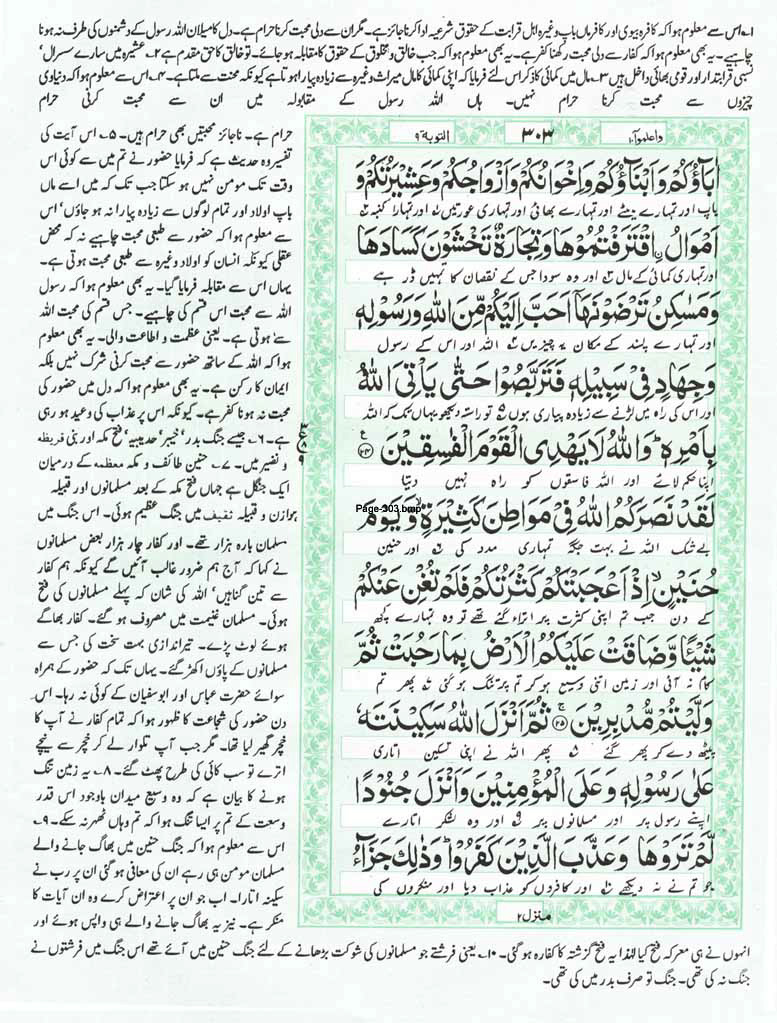 ۱؎ اس سے معلوم ہوا کہ کافرہ بیوی اور کافر ماں باپ وغیرہ اہل قرابت کے حقوق شرعیہ ادا کرنا جائز ہے۔ مگر ان سے دلی محبت کرنا حرام ہے۔ دل کا میلان اللہ رسول کے دشمنوں کی طرف نہ ہونا
چاہیے۔ یہ بھی معلوم ہوا کہ کفار سے دلی محبت رکھنا کفر ہے۔ یہ بھی معلوم ہوا کہ جب خالق و مخلوق کے حقوق کا مقابلہ ہو جائے۔ تو خالق کا حق مقدم ہے ۲؎ عشیرہ میں سارے سسرال'
نسبی قرابتدار اور قومی بھائی داخل ہیں ۳؎ مال میں کمائی کا ذکر اس لئے فرمایا کہ اپنی کمائی کا مال میراث وغیرہ سے زیادہ پیارا ہوتا ہے کیونکہ محنت سے ملتا ہے۔ ۴؎ اس سے معلوم ہوا کہ دنیاوی
چیزوں سے محبت کرنا حرام نہیں۔ ہاں اللہ رسول کے مقابلہ میں ان سے محبت کرنی حرام
واعلموا ۱۰
۳۰۳
التوبۃ ۹
اٰبَآؤُكُمْ وَاَبْنَآؤُكُمْ وَاِخْوَانُكُمْ وَاَزْوَاجُكُمْ وَعَشِيْرَتُكُمْ وَ
باپ اور تمہارے بیٹے اور تمہارے بھائی اور تمہاری عورتیں اور تمہارا کنبہ
اَمْوَالُ ِۨاقْتَرَفْتُمُوْهَا وَتِجَارَةٌ تَخْشَوْنَ كَسَادَهَا
اور تمہاری کمائی کے مال اور وہ سودا جس کے نقصان کا تمہیں ڈر ہے
وَمَسٰكِنُ تَرْضَوْنَهَاۤ اَحَبَّ اِلَيْكُمْ مِّنَ اللّٰهِ وَرَسُوْلِهٖ
اور تمہارے پسند کے مکان یہ چیزیں اللہ اور اس کے رسول
وَجِهَادٍ فِيْ سَبِيْلِهٖ فَتَرَبَّصُوْا حَتّٰى يَاْتِيَ اللّٰهُ
اور اس کی راہ میں لڑنے سے زیادہ پیاری ہوں تو راستہ دیکھو یہاں تک کہ اللہ
بِاَمْرِهٖ ؕ وَاللّٰهُ لَا يَهْدِي الْقَوْمَ الْفٰسِقِيْنَ ﴿۲۴﴾
اپنا حکم لائے اور اللہ فاسقوں کو راہ نہیں دیتا
لَقَدْ نَصَرَكُمُ اللّٰهُ فِيْ مَوَاطِنَ كَثِيْرَةٍ ۙ وَّيَوْمَ
Page-303.bmp
بے شک اللہ نے بہت جگہ تمہاری مدد کی اور حنین
حُنَيْنٍ ۙ اِذْ اَعْجَبَتْكُمْ كَثْرَتُكُمْ فَلَمْ تُغْنِ عَنْكُمْ
کے دن جب تم اپنی کثرت پر اترا گئے تھے تو وہ تمہارے کچھ
شَيْئًا وَّضَاقَتْ عَلَيْكُمُ الْاَرْضُ بِمَا رَحُبَتْ ثُمَّ
کام نہ آئی اور زمین اتنی وسیع ہو کر تم پر تنگ ہو گئی پھر تم
وَلَّيْتُمْ مُّدْبِرِيْنَ ﴿۲۵﴾ ثُمَّ اَنْزَلَ اللّٰهُ سَكِيْنَتَهٗ
پیٹھ دے کر پھر گئے پھر اللہ نے اپنی تسکین اتاری
عَلٰى رَسُوْلِهٖ وَعَلَى الْمُؤْمِنِيْنَ وَاَنْزَلَ جُنُوْدًا
اپنے رسول پر اور مسلمانوں پر اور وہ لشکر اتارے
لَّمْ تَرَوْهَا وَعَذَّبَ الَّذِيْنَ كَفَرُوْا ؕ وَذٰلِكَ جَزَآءُ
جو تم نے نہ دیکھے اور کافروں کو عذاب دیا اور منکروں کی
منزل ۲
حرام ہے۔ ناجائز محبتیں بھی حرام ہیں۔ ۵؎ اس آیت کی
تفسیر وہ حدیث ہے کہ فرمایا حضور نے تم میں سے کوئی اس
وقت تک مومن نہیں ہو سکتا جب تک کہ میں اسے ماں
باپ اولاد اور تمام لوگوں سے زیادہ پیارا نہ ہو جاؤں' اس
سے معلوم ہوا کہ حضور سے طبعی محبت چاہیے نہ کہ محض
عقلی کیونکہ انسان کو اولاد وغیرہ سے طبعی محبت ہوتی ہے۔
یہاں اس سے مقابلہ فرمایا گیا۔ یہ بھی معلوم ہوا کہ رسول
اللہ سے محبت اس قسم کی چاہیے۔ جس قسم کی محبت اللہ
سے ہوتی ہے۔ یعنی عظمت و اطاعت والی۔ یہ بھی معلوم
ہوا کہ اللہ کے ساتھ حضور سے محبت کرنی شرک نہیں بلکہ
ایمان کا رکن ہے۔ یہ بھی معلوم ہوا کہ دل میں حضور کی
محبت نہ ہونا کفر ہے۔ کیونکہ اس پر عذاب کی وعید ہو رہی
ہے۔ ۶؎ جیسے جنگ بدر' خیبر' حدیبیہ' فتح مکہ اور بنی قریظہ
و نضیر میں۔ ۷؎ حنین طائف و مکہ معظمہ کے درمیان
ایک جنگل ہے جہاں فتح مکہ کے بعد مسلمانوں اور قبیلہ
ہوازن و قبیلہ ثقیف میں جنگ عظیم ہوئی۔ اس جنگ میں
مسلمان بارہ ہزار تھے۔ اور کفار چار ہزار بعض مسلمانوں
نے کہا کہ آج ہم ضرور غالب آئیں گے کیونکہ ہم کفار
سے تین گنا ہیں' اللہ کی شان کہ پہلے مسلمانوں کی فتح
ہوئی۔ مسلمان غنیمت میں مصروف ہو گئے۔ کفار بھاگے
ہوئے لوٹ پڑے۔ تیراندازی بہت سخت کی جس سے
مسلمانوں کے پاؤں اکھڑ گئے۔ یہاں تک کہ حضور کے ہمراہ
سوائے حضرت عباس اور ابو سفیان کے کوئی نہ رہا۔ اس
دن حضور کی شجاعت کا ظہور ہوا کہ تمام کفار نے آپ کا
خچر گھیر لیا تھا۔ مگر جب آپ تلوار لے کر خچر سے نیچے
اترے تو سب کائی کی طرح پھٹ گئے۔ ۸؎ یہ زمین تنگ
ہونے کا بیان ہے کہ وہ وسیع میدان باوجود اس قدر
وسعت کے تم پر ایسا تنگ ہوا کہ تم وہاں ٹھہر نہ سکے۔ ۹؎
اس سے معلوم ہوا کہ جنگ حنین میں بھاگ جانے والے
مسلمان مومن ہی رہے ان کی معافی ہو گئی ان پر رب نے
سکینہ اتارا۔ اب جو ان پر اعتراض کرے وہ ان آیات کا
منکر ہے۔ نیز یہ بھاگ جانے والے ہی واپس ہوئے اور
انہوں نے ہی معرکہ فتح کیا لہٰذا یہ فتح گزشتہ کا کفارہ ہو گئی۔ ۱۰؎ یعنی فرشتے جو مسلمانوں کی شوکت بڑھانے کے لئے جنگ حنین میں آئے تھے اس جنگ میں فرشتوں نے
جنگ نہ کی تھی۔ جنگ تو صرف بدر میں کی تھی۔